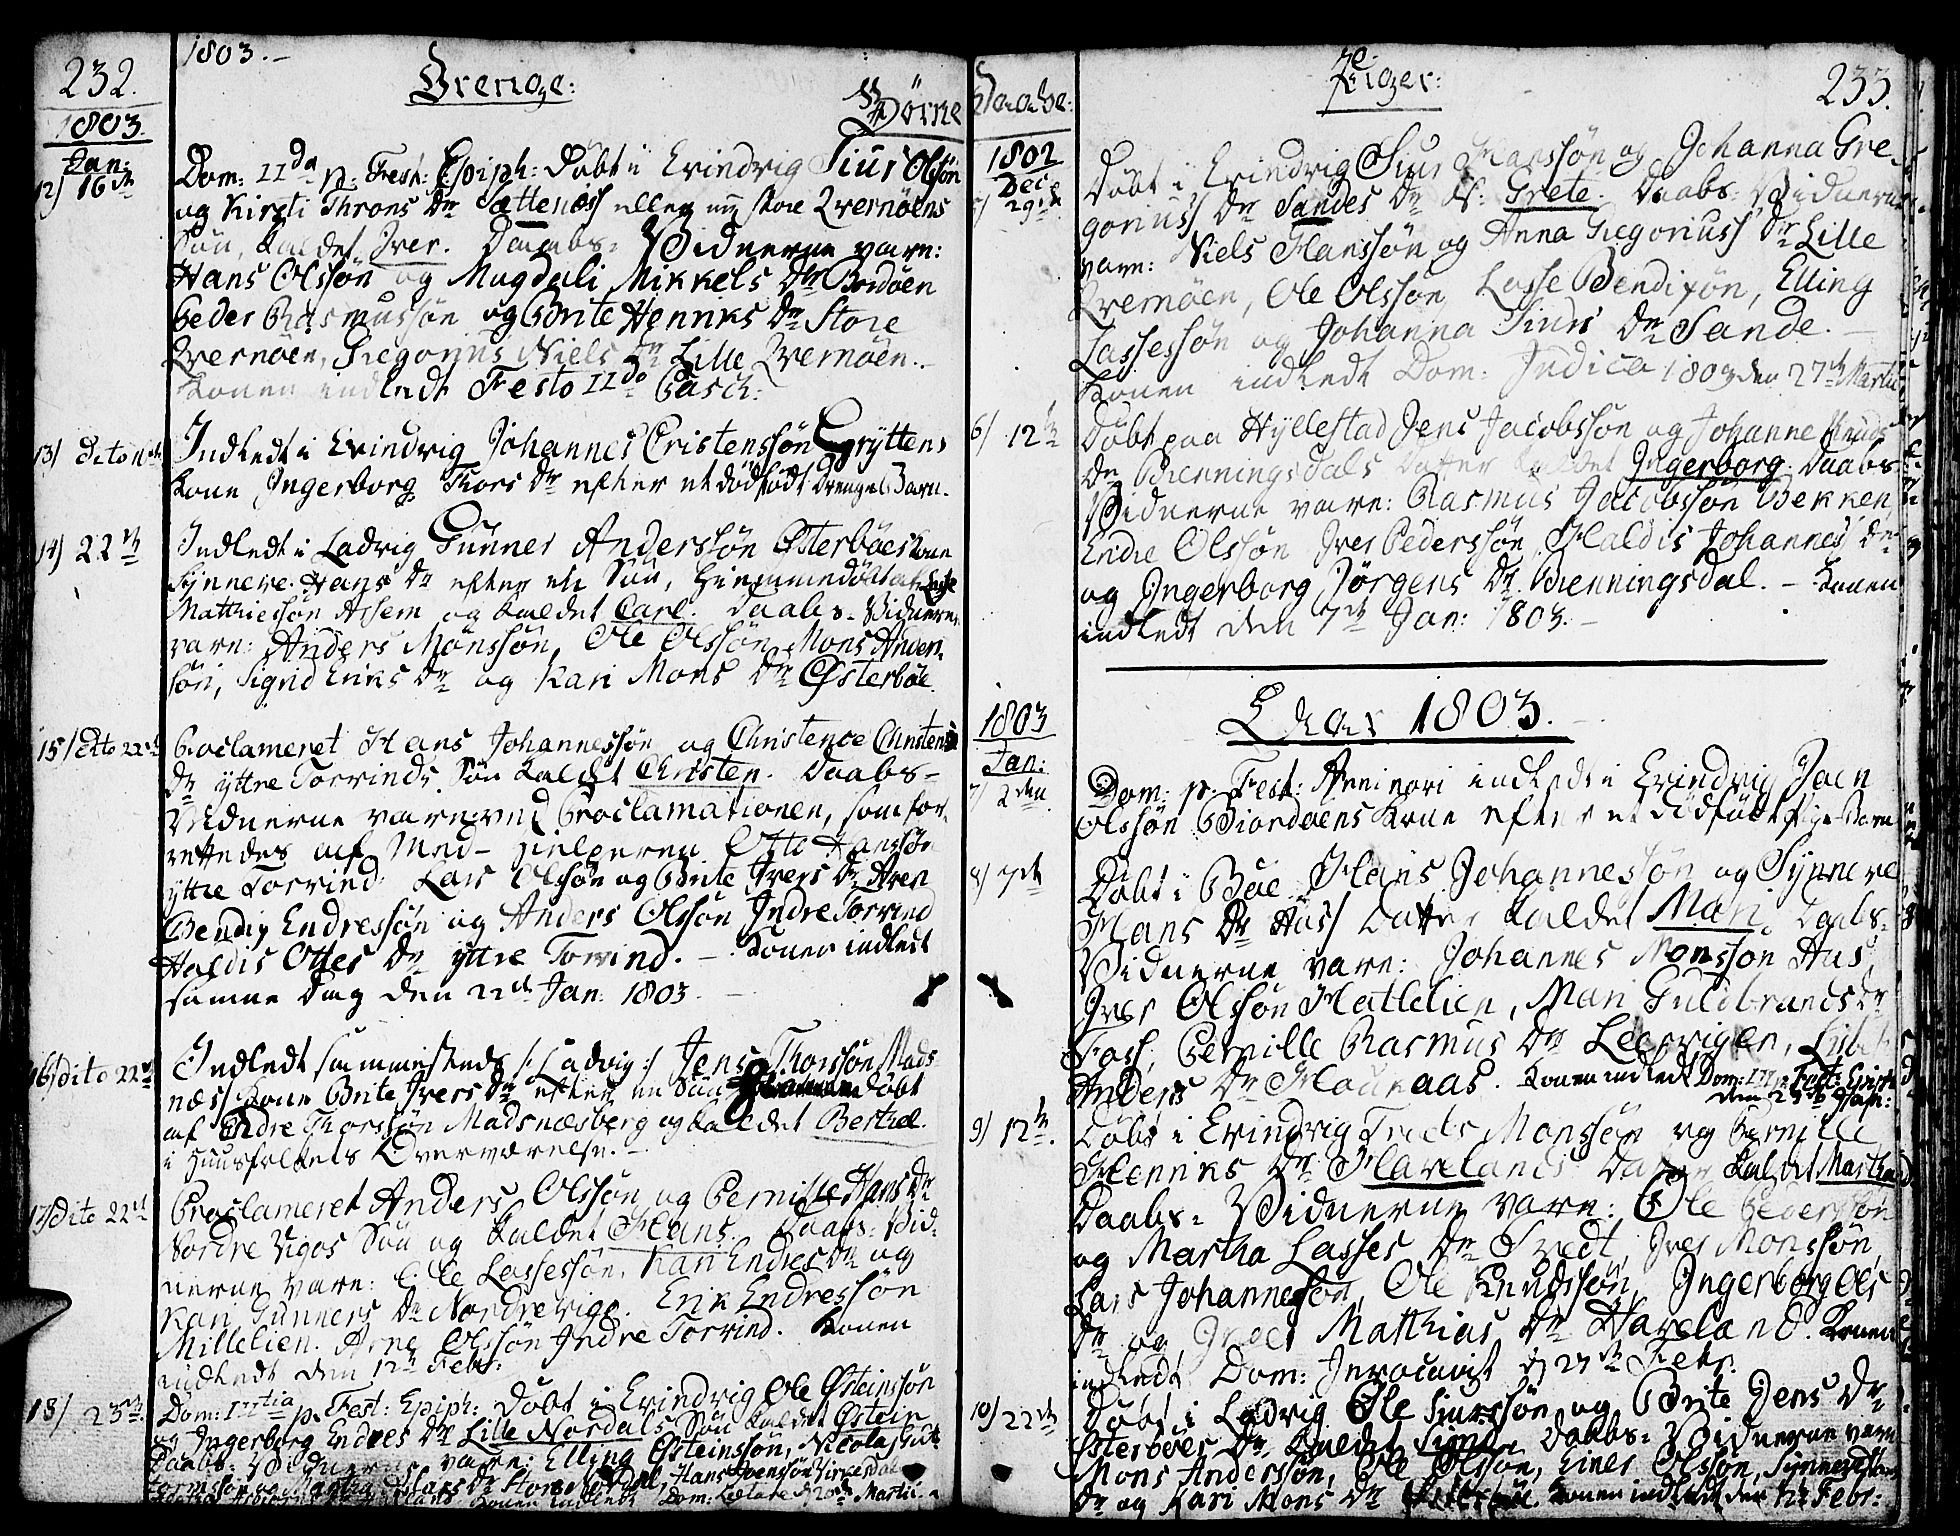 232.
1803.-
Drenge:
Børne
1803.
Jan:
12) 16de Dom: IIda p. Fest: Epiph: Døbt i Evindvig Siur Olssøn
og Kirsti Throns Dr Sættenæss eller nu Store Qvernøens
Søn, kaldet Iver. Daabs- Vidnerne vare:
Hans Olssøn og Magdali Mikkels Dr Bordøen
Peder Rasmussøn og Brite Henriks Dr Store
Qvernøen, Gregorius Niels Dr Lille Qvernøen.-
Konen indledt Festo IIdo Pasch:
13) dito Indledt i Evindvig Johannes Cristenssøn Gryttens
Kone Ingerborg Thors Dr efter et dødfødt Drenge-Barn.
14) 22de Indledt i Ladvig Gunner Anderssøn Østerbøes Kone
Synneve Hans Dr efter en Søn, hiemmedøbt af
Matthiessøn og kaldet Carl. Daabs- Vidnerne
vare: Anders Monssøn, Ole Olssøn, Mons Anders-
søn, Signi Eriks Dr og Kari Mons Dr Østerbøe.
15) dito 22de Proclameret Hans Johannessøn og Christence Christens
Dr yttre Torvinds Søn kaldet Christen. Daabs-
Vidnerne vare ved Proclamationen, som for-
rettedes af Med- hielperen Otte Hanssøn
yttre Torvind: Lars Olssøn og Brite Ivers Dr Aven
Bendix Endressøn og Anders Olssøn Indre Torvind
Haldis Ottes Dr yttre Torvind.- Konen indledt
samme Dag den 22de Jan: 1803.-
16) dito 22de Indledt sammesteds /: Ladvig :/ Jens Thorssøn Mads-
næss Kone Brite Ivers Dr efter en Søn døbt
af Endre Thorssøn Madsnæsberg og kaldet Berthel.
i Huusfolkets Overværelse.-
17) dito 22de Proclameret Anders Olssøn og Pernille Hans Dr
Nordre Vigos Søn og kaldet Hans. Daabs- Vid-
nerne vare: Ole Lassessøn, Kari Endres Dr og
Kari Gunners Dr Nordre vigo. Erik Endressøn
Millelien. Arne Olssøn Indre Torvind. Konen
indledt den 12te Febr:
18) 23de Dom: IIItia p. Fest: Epiph: Døbt i Evindvig Ole Østeinssøn
og Ingerborg Endres Dr Lille Nordals Søn kaldet Østein
Daabs- Vidnerne vare: Elling Østeinssøn, Nicolaj
og Martha Dr Store Nordal, Hans Joenssøn
Konen indledt Dom: Lætare d 20de Martii
Daabe:
Piger:
233.
1802
Dec
5) 29de Døbt i Evindvig Siur Hanssøn og Johanna Gre-
goriuss Dr Sandes Dr k: Grete. Daabs- Vidnerne
vare: Niels Hanssøn og Anna Gregoriuss Dr Lille
Qvernøen, Ole Olssøn, Lasse Bendixøn, Elling
Lassessøn og Johanna Siurs Dr Sande.-
Konen indledt Dom: Judica 1803 den 27de Martii
6) 12te Døbt paa Hyllestad Jens Jacobssøn og Johanne Knuds
Dr Brenningsdals Datter kaldet Ingerborg. Daabs-
Vidnerne vare: Rasmus Jacobssøn Bekken,
Endre Olssøn, Iver Pederssøn, Haldis Johannes Dr
og Ingerborg Jørgens Dr Brenningsdal.- Konen
indledt den 7de Jan: 1803.-
1803.
1803
Jan:
7) 2den Dom: p. Fest: Anni novi indledt i Evindvig Joen
Olssøn Biordøens Kone efter et dødfødt Pige-Barn
8) 7de Døbt i Bøe Hans Johannessøn og Synneve
Hans Dr Huss Datter kaldet Mari. Daabs-
Vidnerne vare: Johannes Monssøn Hus,
Iver Olssøn Hatlelien, Mari Guldbrands Dr
Foss, Pernille Rasmus Dr Leervigen, Lisbet
Anders Dr. Konen indledt Dom: III p. Fest: Epiph:
den 23de Jan:
9) 12te. Døbt i Evindvig Monssøn og Pernille
Henriks Dr Havelands Datter kaldet Martha
Daabs- Vidnerne vare: Ole Pederssøn
og Martha Lasses Dr Tvedt, Iver Monssøn,
Lars Johannessøn, Ole Knudssøn, Ingerborg Oles
Dr og Matthias Dr Haveland. Konen
indledt Dom: Invocavit d 27de Febr:
10) 22de Døbt i Ladvig Ole Siurssøn og Brite Jens Dr
Østerbøes Dr kaldet Signi. Daabs- Vidnerne vare
Mons Anderssøn, Ole Olssøn, Einer Olssøn, Synneve
Dr og Kari Mons Dr Østerbøe. Konen indledt den 12te Febr: